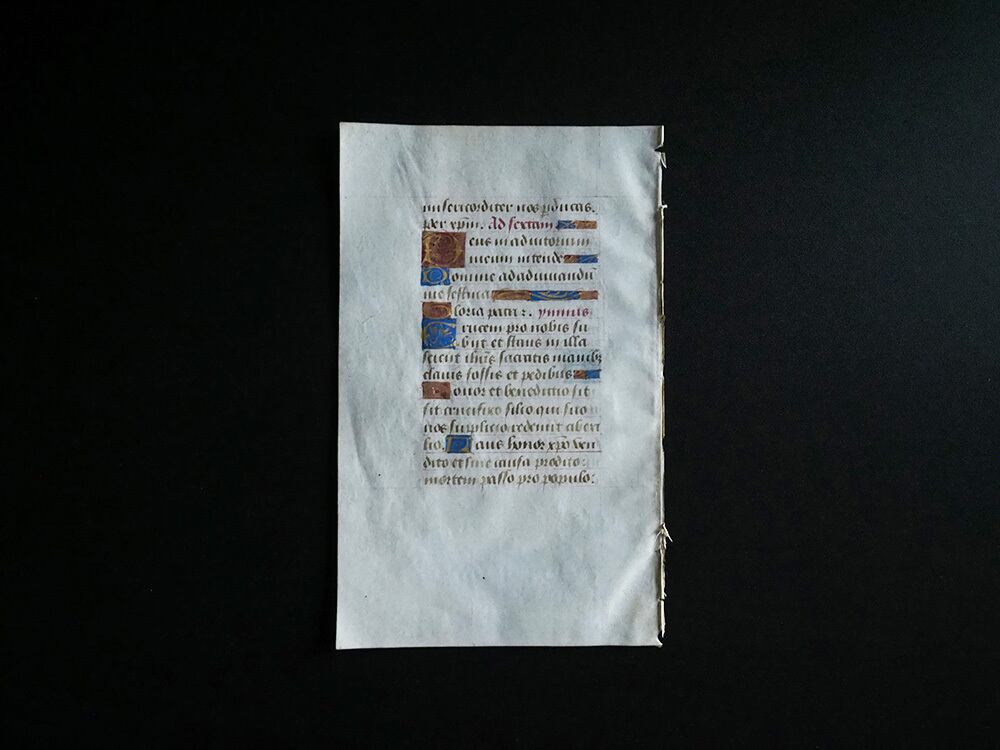 misericorditer nos pducas.
per xpm. Ad sextam
Deus in adiutorium
meum intende
Domine ad adiuuandū
me festina
Gloria patri. ymnus
Crucem pro nobis su
biit et stans in illa
sciciit ihūs sacratis manibz
clauis fossis et pedibus
Honor et benedictio sit
sit crucifixo filio qui suo
nos supplicio redemit ab exi
lio. Laus honor xpo ven
dito et sine causa prodito:
mortem passo pro populo: